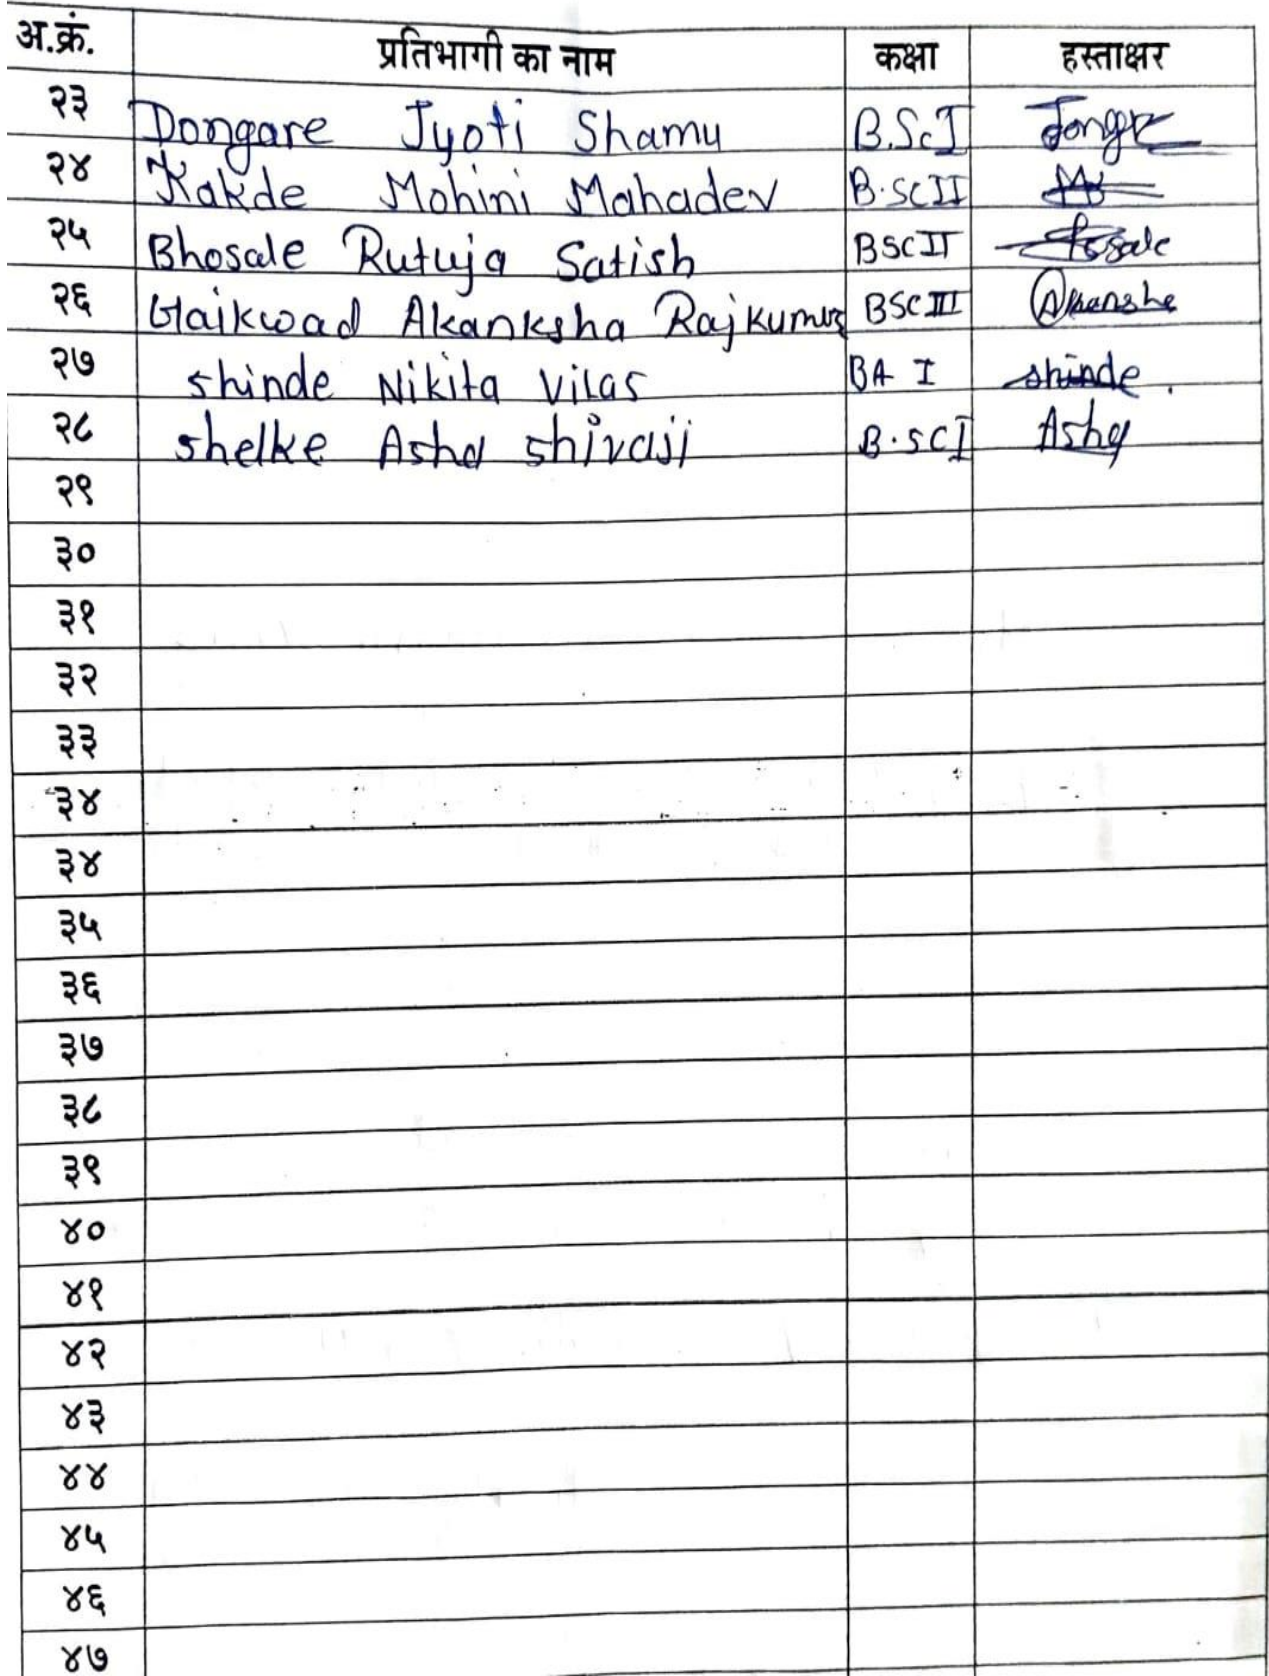 अ.क्रं. प्रतिभागी का नाम कक्षा हस्ताक्षर
२३ Dongare Jyoti Shamu B.Sc I
२४ Kakde Mohini Mahadev B.SC II
२५ Bhosale Rutuja Satish BSC II
२६ Gaikwad Akanksha Rajkumar BSC III
२७ shinde Nikita Vilas BA I shinde.
२८ shelke Asha shivaji B.SC I Asha
२९
३०
३१
३२
३३
३४
३४
३५
३६
३७
३८
३९
४०
४१
४२
४३
४४
४५
४६
४७